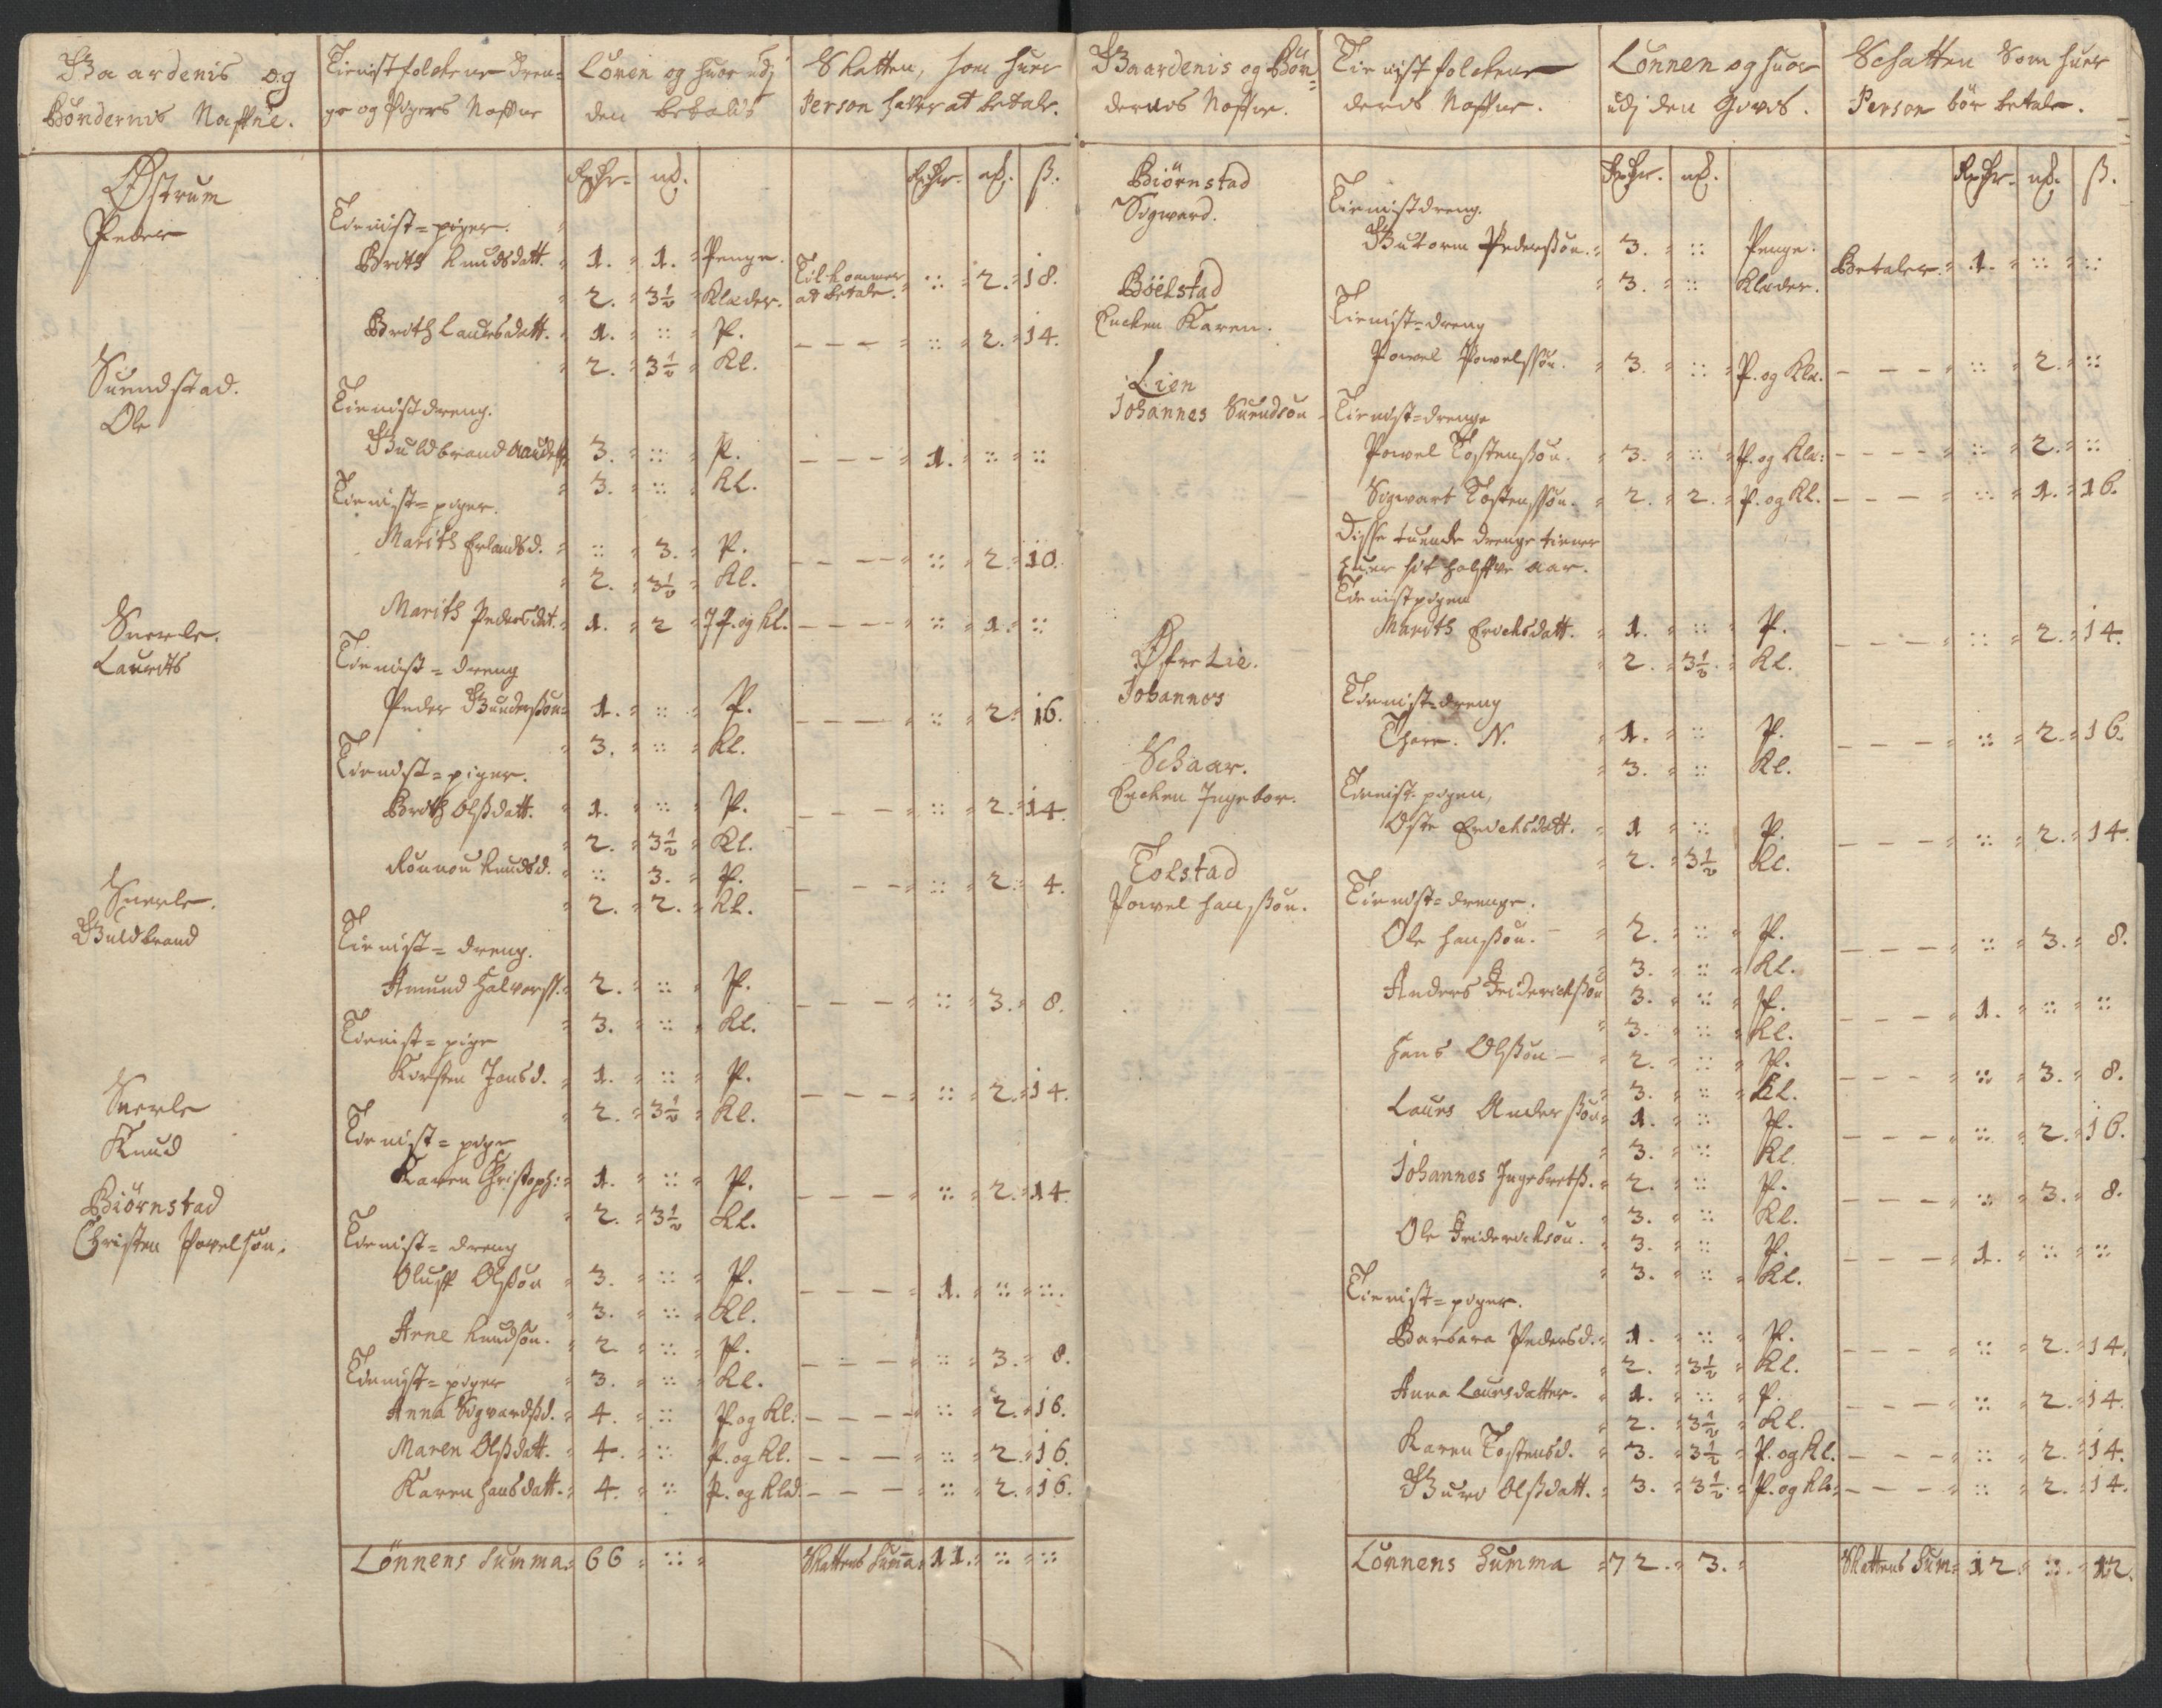 Gaardenis og
Böndernis Naffne.
Tienistfolckene dren=
ge og Pigers Naffne
Lönen og huor udj
den betalis
Skatten, som huer
Person hafver at betale.
Rixdr. mk.
Rixdr. mk. ß.
Østrum
Peder
Tienist=piger.
Brith Knudsdatt. 1. 1. Penge.
2. 3½ Klæder. Tilkommer at betale. :: 2. 18.
Brith Lauersdatt. 1. :: P.
2. 3½ Kl. — — — :: 2. 14.
Suendstad.
Ole
Tienistdreng.
Guldbrand 3. :: P. — — — 1. :: ::
3. :: Kl.
Tienist=piger.
Marith Erlandsd. :: 3. P.
2. 3½ Kl. — — — :: 2. 10.
Marith Pedersdat. 1. 2 P. og Kl. — — — :: 1. ::
Snerle.
Laurits
Tienist=dreng
Peder Gunderßön 1. :: P. — — — :: 2. 16.
3. :: Kl.
Tienist=piger.
Brith Olßdatt. 1. :: P. — — — :: 2. 14.
2. 3½ Kl.
Rönnou Knudsd. :: 3. P. — — — :: 2. 4.
2. 2. Kl.
Snerle.
Guldbrand
Tienist=dreng.
Amund Halvorß. 2. :: P. — — — :: 3. 8.
3. :: Kl.
Tienist=pige
Kirsten Jonsd. 1. :: P. — — — :: 2. 14.
2. 3½ Kl.
Snerle
Knud
Tienist=pige
Karen Christoph: 1. :: P. — — — :: 2. 14
2. 3½ Kl.
Biörnstad
Christen Povelsön.
Tienist=dreng
Oluff Olßön 3. :: P. — — — 1. :: ::
3. :: Kl.
Arne Knudsön. 2. :: P. — — — :: 3. 8.
3. :: Kl.
Tienist=piger
Anna Sigvardßd. 4. :: P. og Kl. — — — :: 2. 16.
Maren Olßdatt. 4. :: P. og Kl. — — — :: 2. 16.
Karen Hansdatt. 4. :: P. og Klæd. — — — :: 2. 16.
Lönnens Summa. 66 :: Skattens Summa. 11. :: ::
Gaardenis og Bön=
dernis Naffne.
Tienistfolckene
deris Naffne.
Lönnen og huor
udj den Givis.
Schatten Som huer
Person bör betale.
Rixdr. mk.
Rixdr. mk. ß.
Biörnstad
Sigvard.
Tienistdreng.
Gutorm Pederßön. 3. :: Penge.
3. :: Klæder. Betaler 1. :: ::
Böelstad
Encken Karen.
Tienist=dreng
Powel Powelßön. 3. :: P. og Klæ. — — — :: 2. ::
Lien
Johannes Suendsön
Tienist=drenge
Powel Tostenßön. 3. :: P. og Klæ: — — — :: 2. ::
Sigvart Tostenßön. 2. 2. P. og Kl. — — — :: 1. 16.
Disse tuende drenge tiener
huer sit halffve aar.
Tienistpigen
Marith Erichsdatt. 1. :: P. — — — :: 2. 14.
2. 3½ Kl.
Øfre Lie.
Johannes
Tienist=dreng
Thore. N. 1. :: P. — — — :: 2. 16.
3. :: Kl.
Schaar.
Encken Ingebor.
Tienist-pigen,
Oste Erichsdatt. 1 :: P. — — — :: 2. 14.
2. 3½ Kl.
Tolstad
Powel Hanßön.
Tienist=drenge.
Ole Hanßön. 2. :: P. — — — :: 3. 8.
3. :: Kl.
Anders Friderichßön 3. :: P. — — — 1. :: ::
3. :: Kl.
Hans Olßön 2. :: P. — — — :: 3. 8.
3. :: Kl.
Laurs Anderßön 1. :: P. — — — :: 2. 16.
3. :: Kl.
Johannes Ingebretß. 2. :: P. — — — :: 3. 8.
3. :: Kl.
Ole Friderichsön. 3. :: P. — — — 1. :: ::
3. :: Kl.
Tienist=piger.
Barbara Pedersd. 1. :: P. — — — :: 2. 14.
2. 3½ Kl.
Anna Laursdatter. 1. :: P. — — — :: 2. 14.
2. 3½ Kl.
Karen Tostensd. 3. 3½ P. og Kl. — — — :: 2. 14.
Guro Olßdatt. 3. 3½ P. og Klæ — — — :: 2. 14.
Lönnens Summa 72. 3. Skattens Sum 12. :: 12.